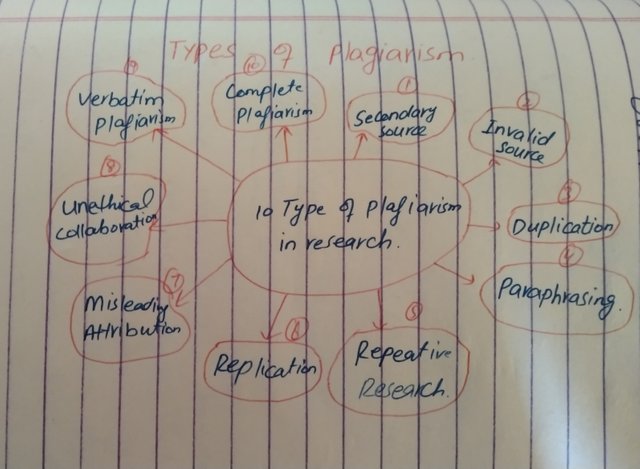 Types of Plagiarism
10 Type of Plagiarism
in research.
1
Secondary
source
2
Invalid
source
3
Duplication
4
Paraphrasing.
5
Repeative
Research.
6
Replication
7
Misleading
Attribution
8
Unethical
Collaboration
9
Verbatim
Plagiarism
10
Complete
Plagiarism